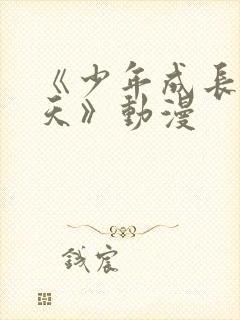 《少年成長
天》動漫
錢宸